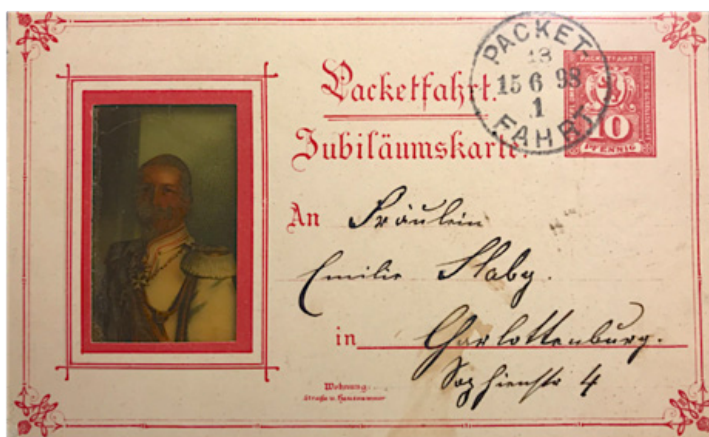 Packetfahrt.
Jubiläumskarte.
PACKET
18
15 6 98
1
FAHRT
PACKETFAHRT
10
PFENNIG
An Fräulein
Emilie Slaby.
in Charlottenburg.
Sophienstr 4
Wohnung
Straße u. Hausnummer